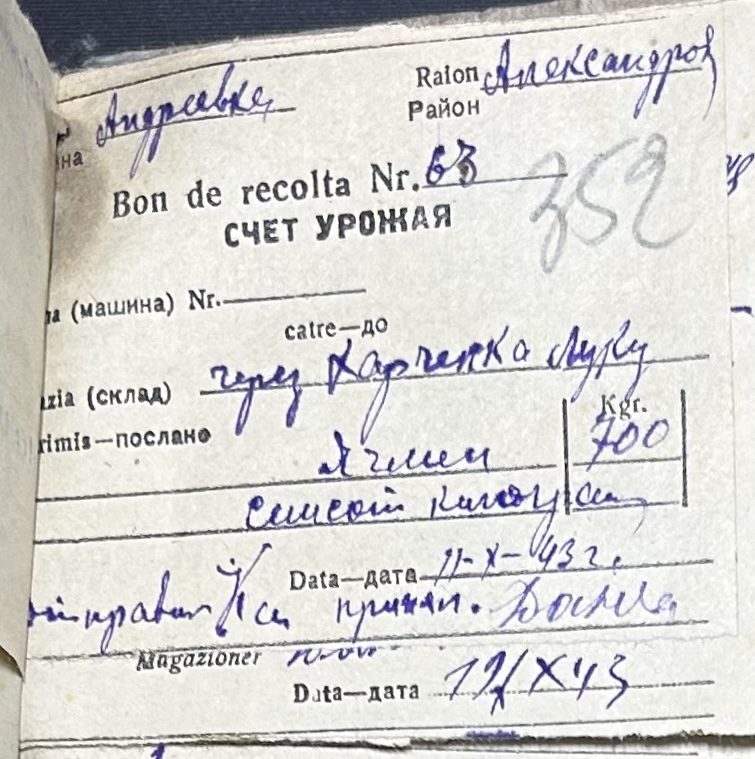 Андреевка Raion Александров
на Район
Bon de recolta Nr. 63
352
СЧЕТ УРОЖАЯ
а (машина) Nr.
catre—до
zia (склад) через Харченка Луку
rimis—послано Kgr.
Ячмен 700
Семсот килограм
Data—дата 11-X-43 г.
отправил принял.
Magazioner
Data—дата 12/X 43